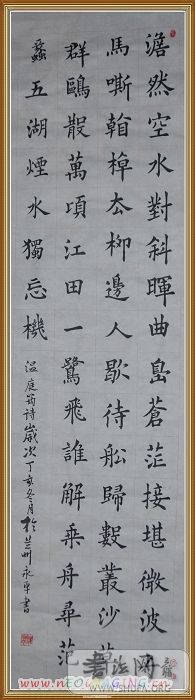 澹然空水對斜暉曲島蒼茫接堪微波
馬嘶翰棹厺柳邊人歇待船歸數叢沙草
群鷗散萬頃江田一鷺飛誰解乘舟尋范
蠡五湖煙水獨忘機
温庭筠诗歲次丁亥冬月於兰州永平書
书法网